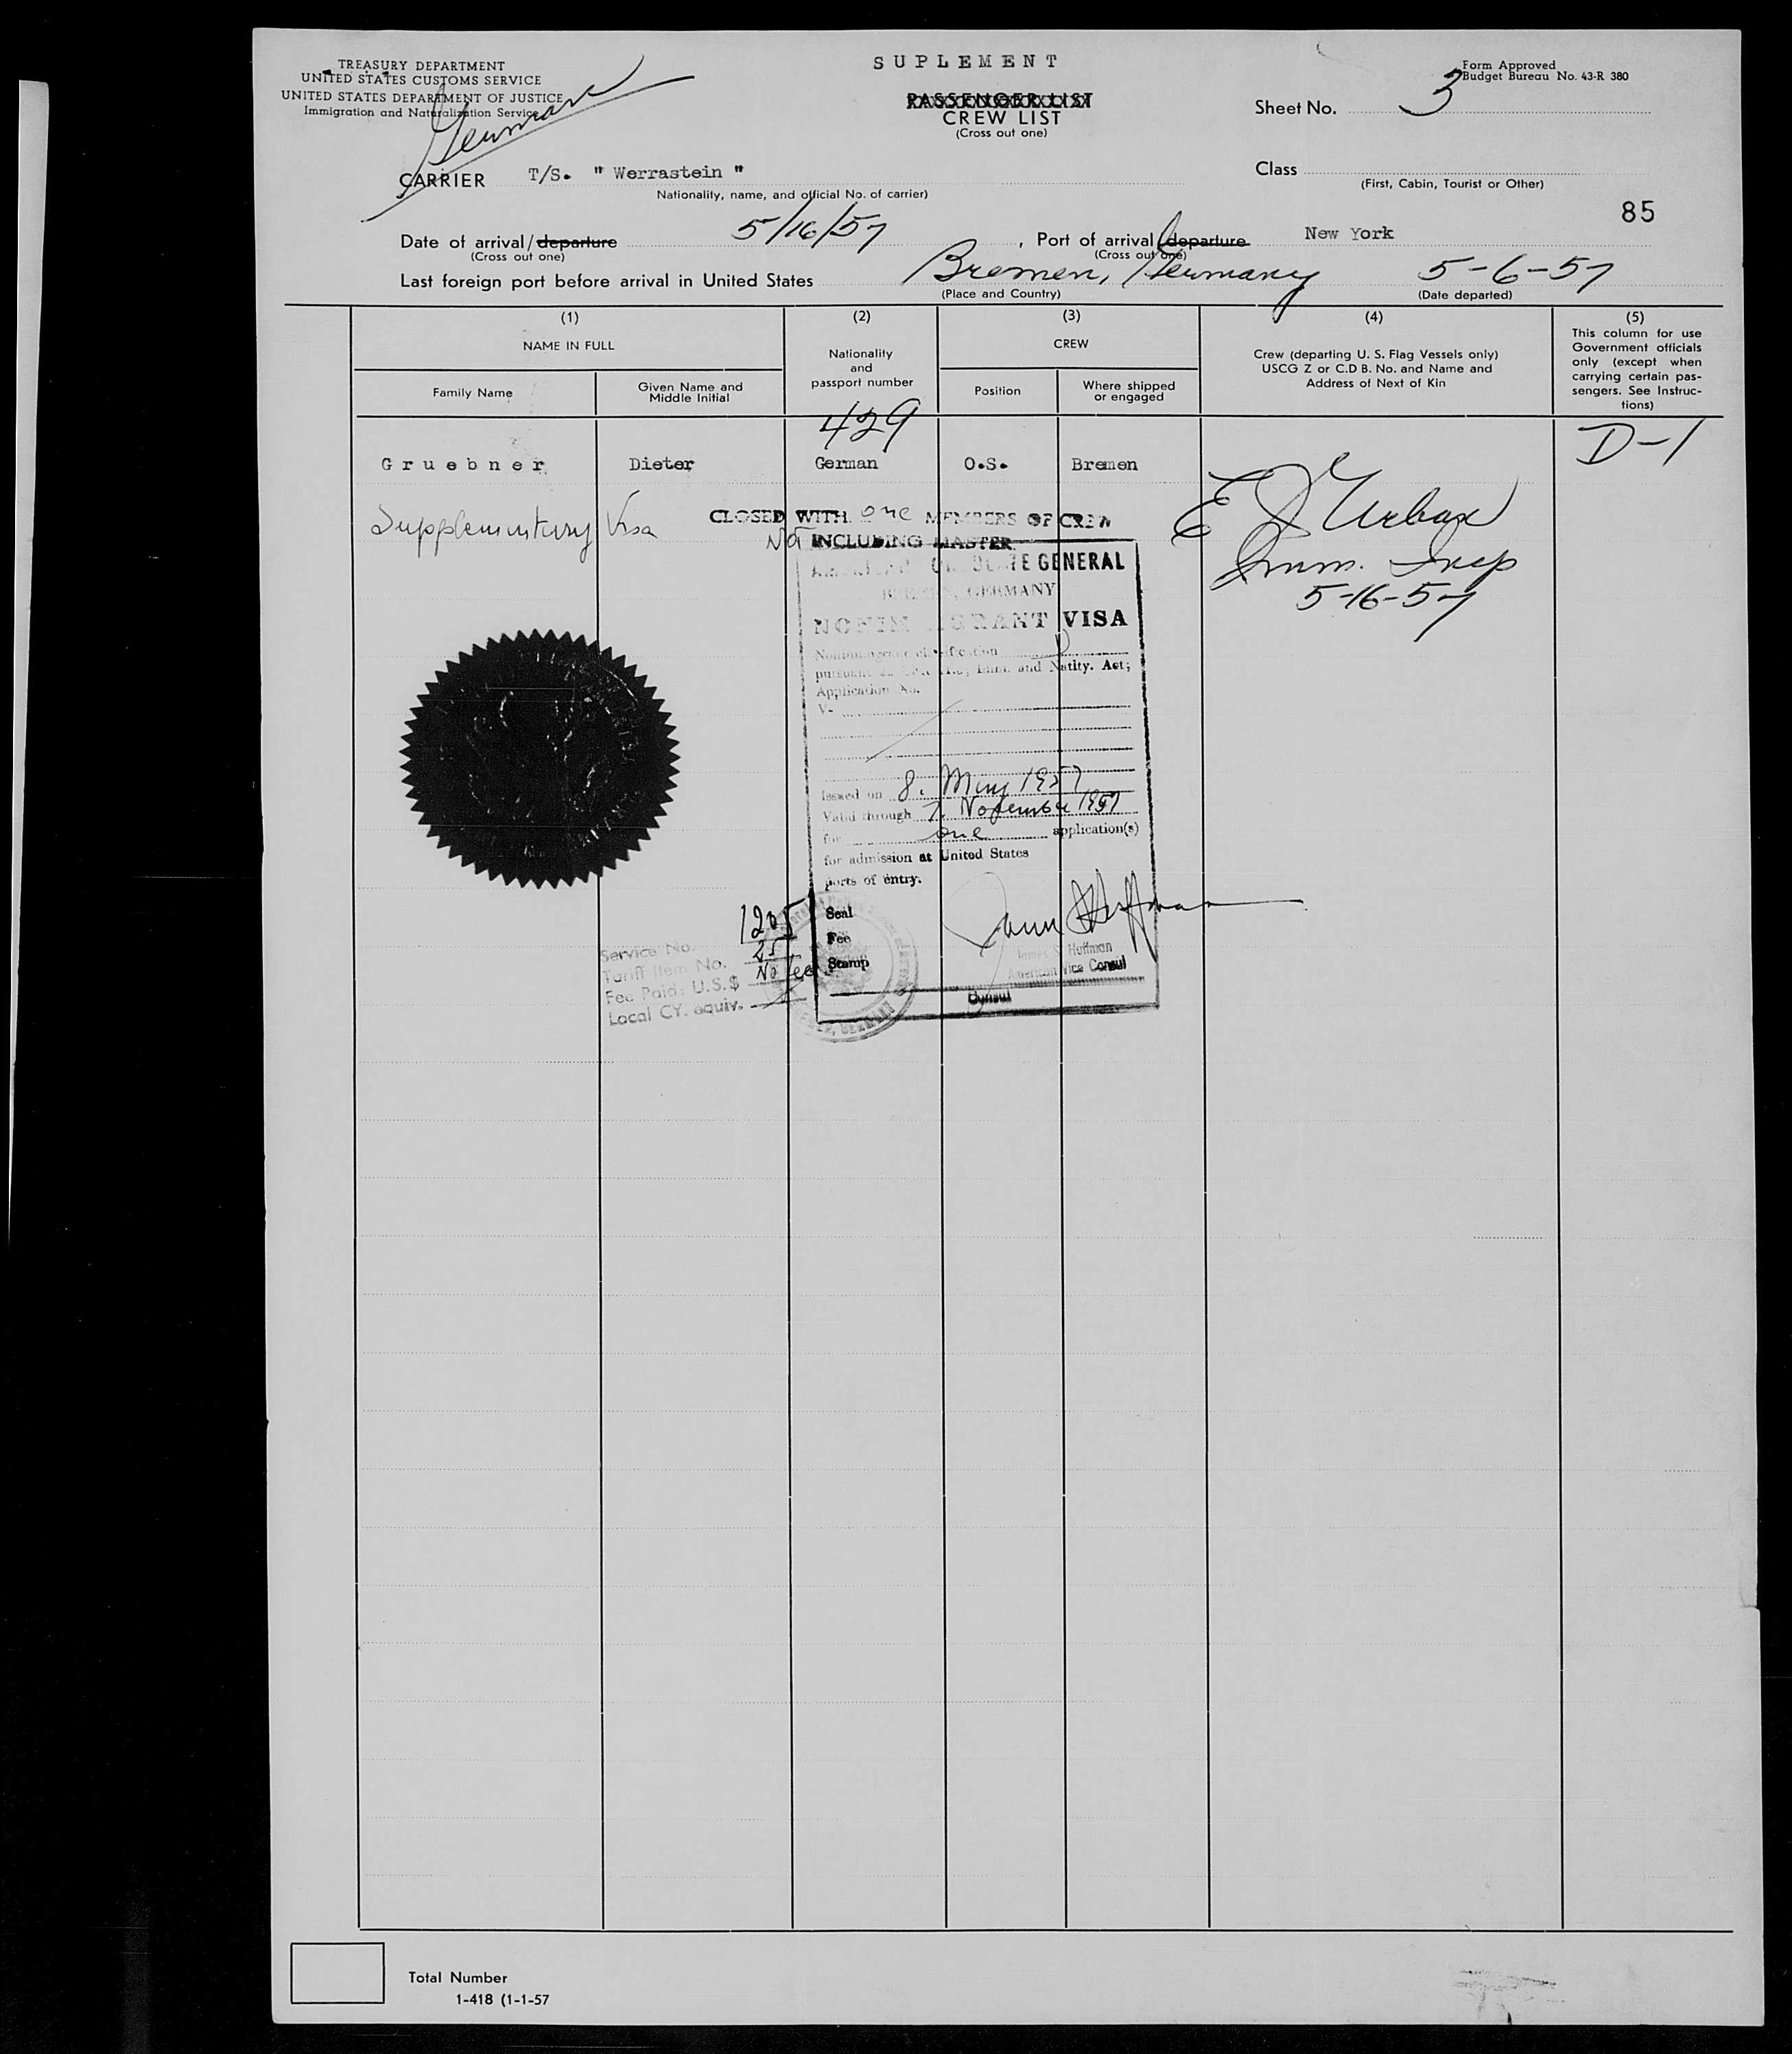 TREASURY DEPARTMENT
UNITED STATES CUSTOMS SERVICE
UNITED STATES DEPARTMENT OF JUSTICE
Immigration and Naturalization Service
SUPLEMENT
PASSENGER LIST
CREW LIST
(Cross out one)
Form Approved
Budget Bureau No. 43-R 380
Sheet No. 3
German
CARRIER T/S. " Werrastein "
Nationality, name, and official No. of carrier)
Class
(First, Cabin, Tourist or Other)
85
Date of arrival/departure 5/16/57, Port of arrival/departure New York
(Cross out one) (Cross out one)
Last foreign port before arrival in United States Bremen, Germany 5-6-57
(Place and Country) (Date departed)
(1)
NAME IN FULL
Family Name
Given Name and
Middle Initial
(2)
Nationality
and
passport number
(3)
CREW
Position
Where shipped
or engaged
(4)
Crew (departing U. S. Flag Vessels only)
USCG Z or C.D B. No. and Name and
Address of Next of Kin
(5)
This column for use
Government officials
only (except when
carrying certain pas-
sengers. See Instruc-
tions)
429
D-1
Gruebner Dieter German O.S. Bremen
Supplementary Visa
CLOSED WITH one MEMBERS OF CREW
INCLUDING MASTER
E D Urban
Imm. Insp
5-16-57
GENERAL
GERMANY
VISA
pursuant Imm. and Natlty. Act;
Application No.
V-
Issued on 8. May 1957
Valid through 7. November 1957
for one application(s)
for admission at United States
ports of entry.
Seal
Fee
Stamp
James S. Huffman
American Vice Consul
Consul
Service No. 1205
Tariff Item No. 25
Fee Paid: U.S.$ No fee
Local CY. equiv.
Total Number
1-418 (1-1-57